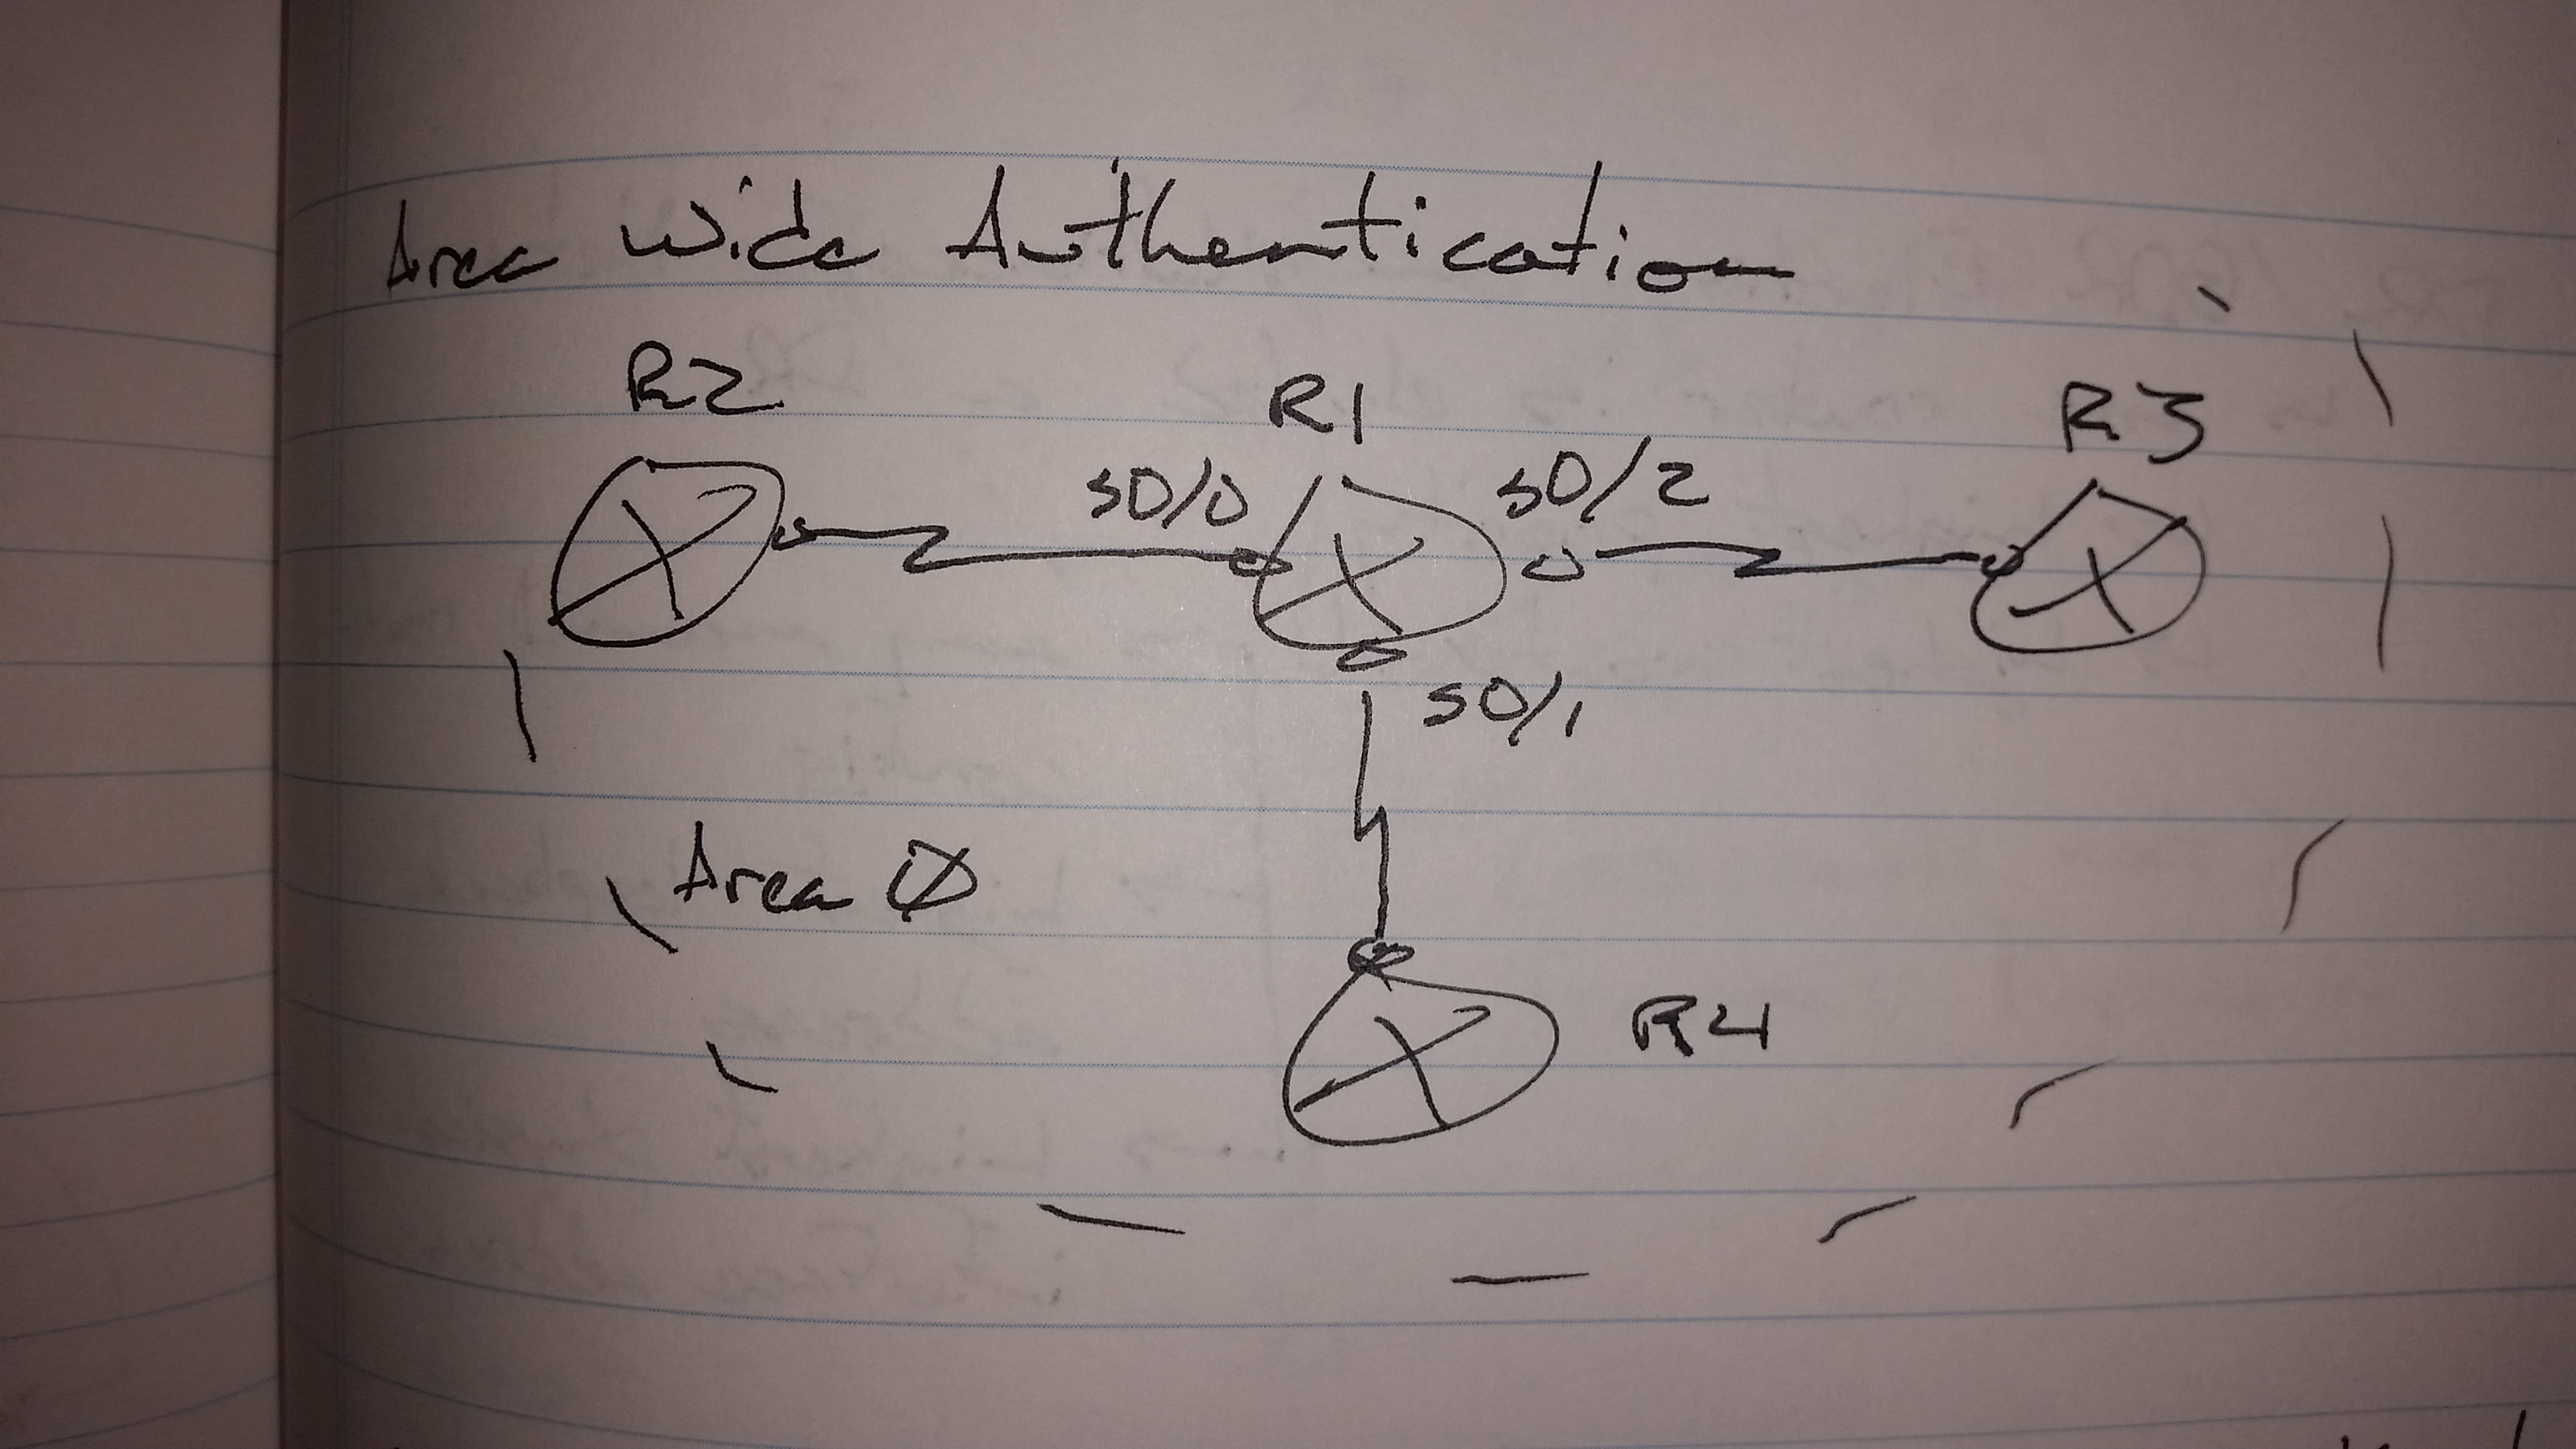 Area Wide Authentication
R2
R1
R3
S0/0
S0/2
S0/1
Area Ø
R4